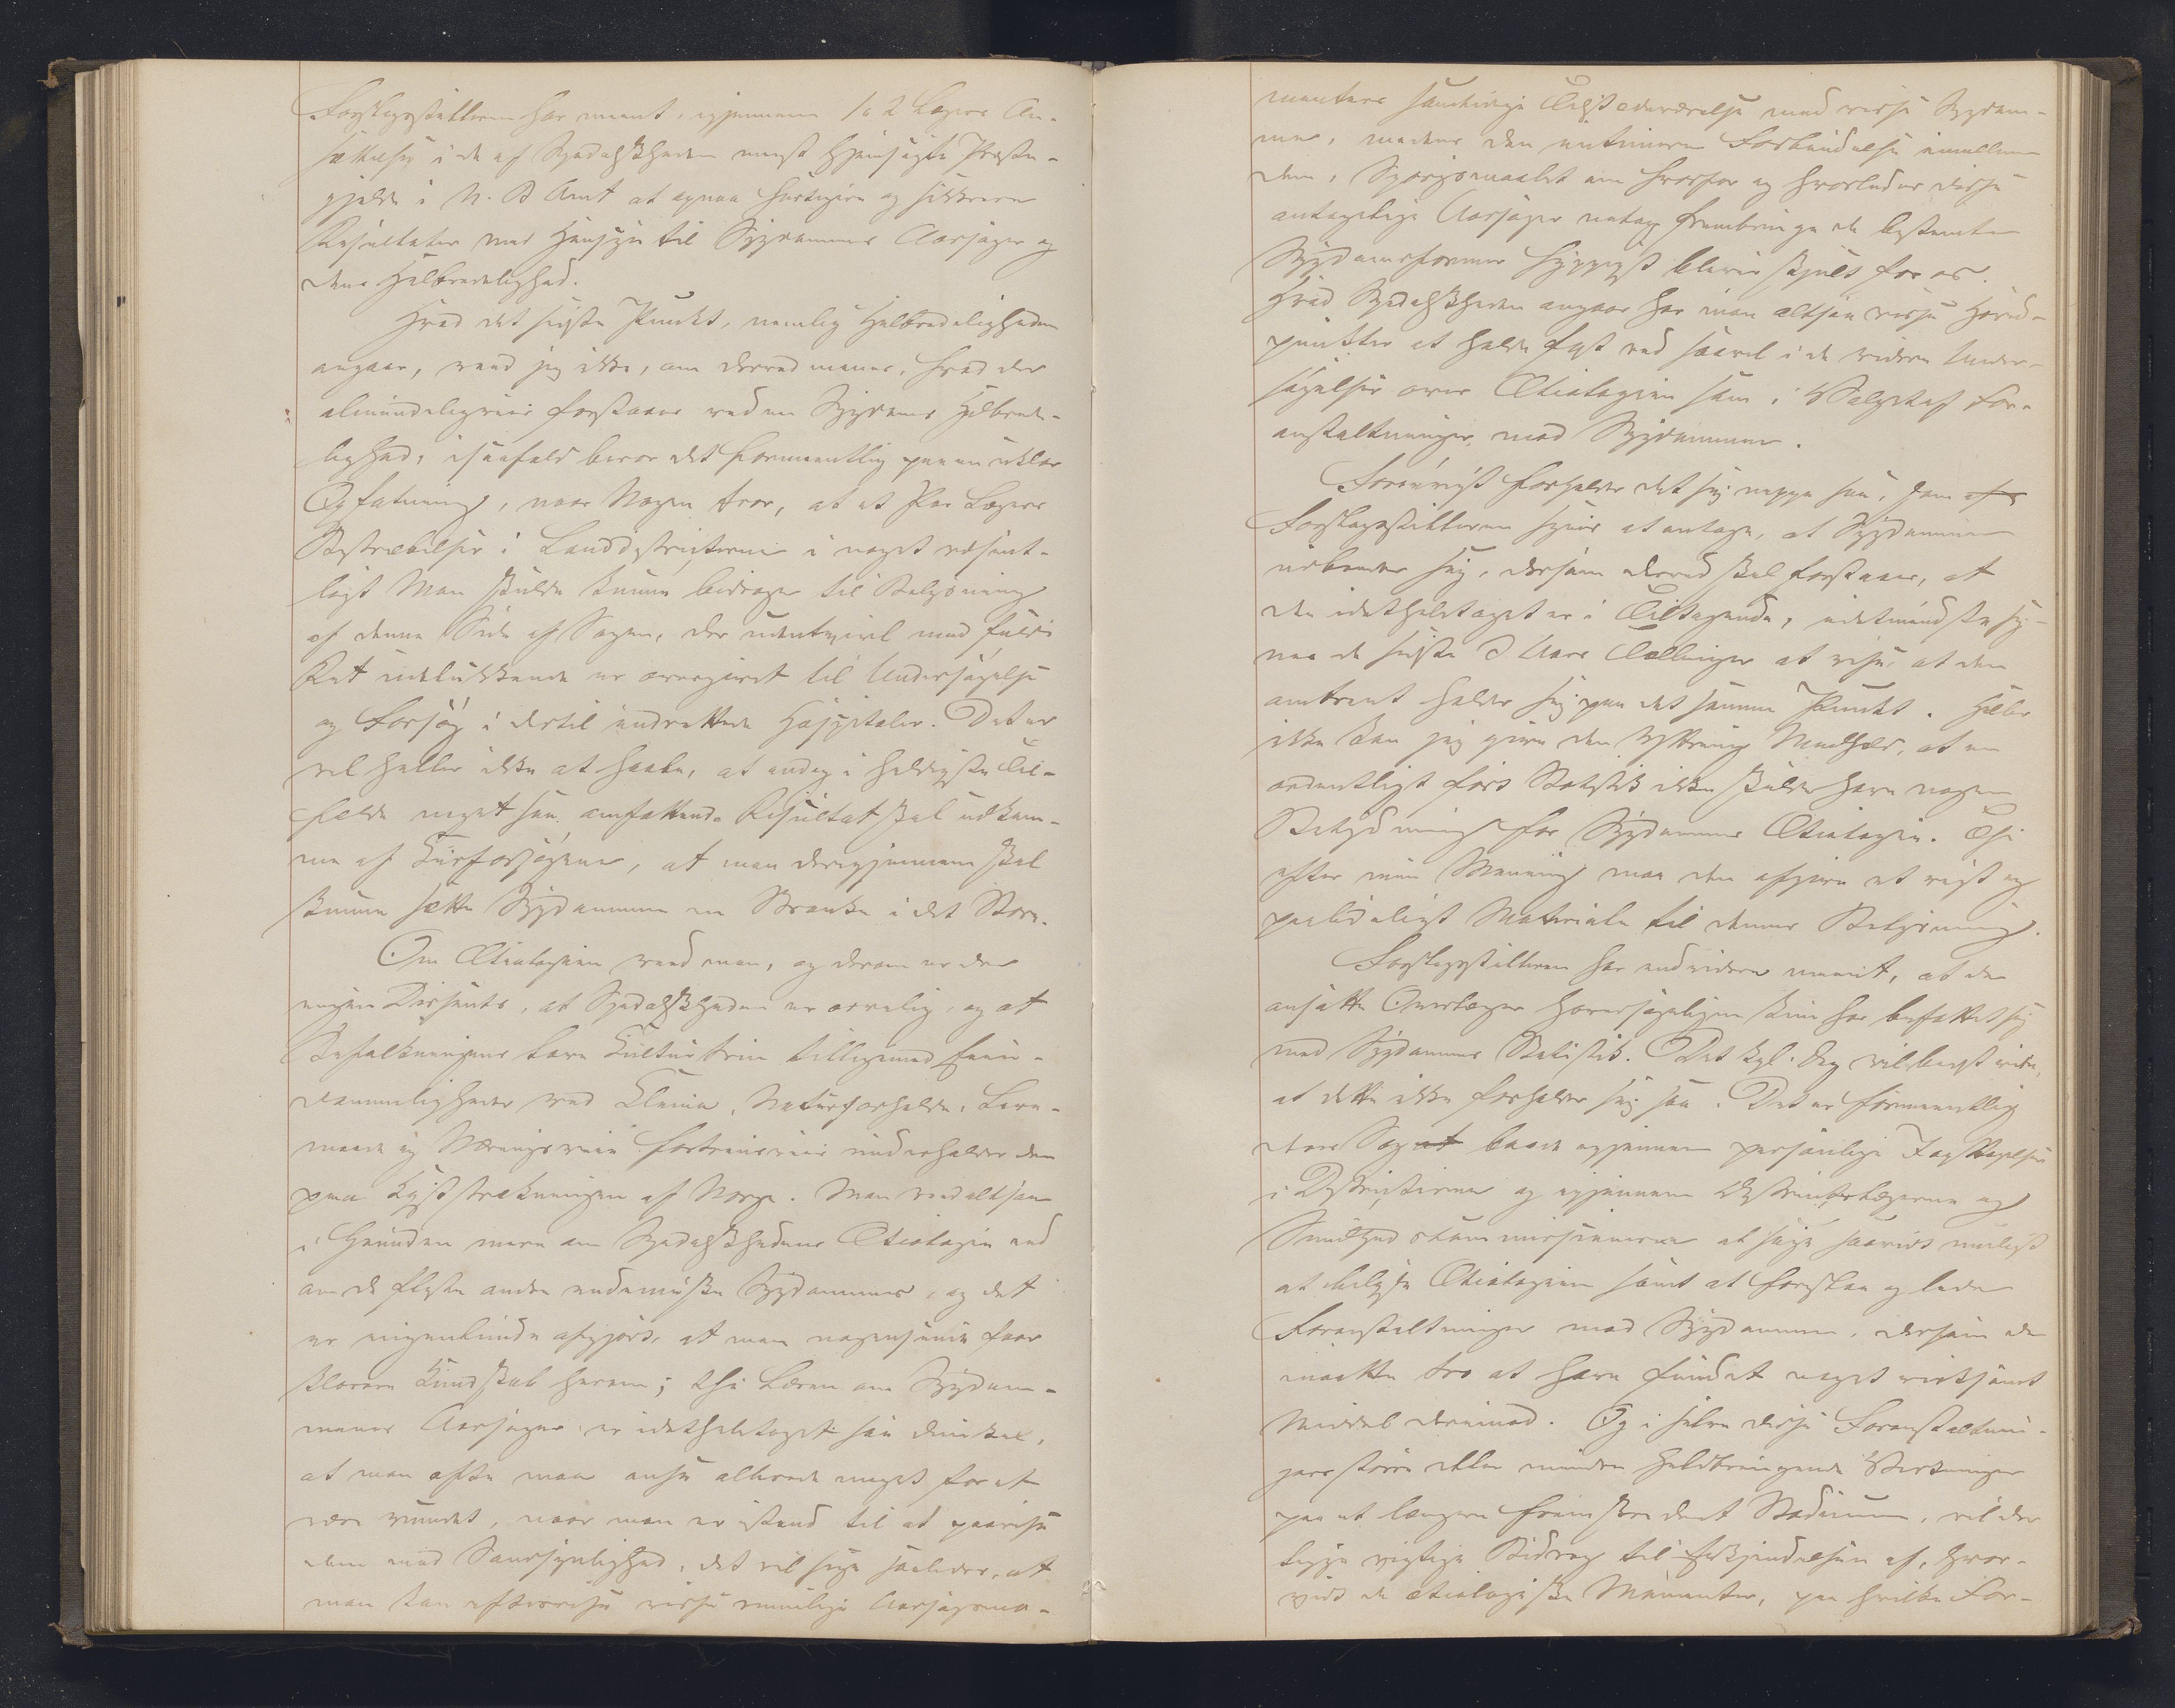 Forslagsstilleren har meent, igjennem 1 a 2 Lægers An-
sættelse i de af Spedalskheden meest hjemsøgte Præste-
gjelde i N. B. Amt at opnaa hurtigere og sikkrere
Resultater med Hensyn til Sygdommens Aarsager og
dens Helbredelighed.
Hvad det sidste Punkt, nemlig Helbredeligheden
angaar, veed jeg ikke, om derved menes, hvad der
almindeligviis forstaaes ved en Sygdoms Helbrede-
lighed; isaafald beror det formeentlig paa en uklar
Opfatning, naar Nogen tror, at et Par Lægers
Bestræbelser i Landdistricterne i noget væsent-
ligt Mon skulde kunne bidrage til Belysning
af denne Side af Sagen, der udentvivl med fuld
Ret udelukkende er overgivet til Undersøgelse
og Forsøg i dertil indrettede Hospitaler. Det er
vel heller ikke at haabe, at endog i heldigste Til-
fælde noget saa omfattende Resultat skal udkom-
me af Kurforsøgene, at man derigjennem skal
kunne sætte Sygdommen en Skranke i det Store.
Om Ætiologien veed man, og derom er der
ingen Dissents, at Spedalskheden er arvelig, og at
Befolkningens lave Kulturtrin tilligemed Eien-
dommeligheder ved Klima, Naturforholde, Leve-
maade og Næringsveie fortrinsviis underholder den
paa Kyststrækningen af Norge. Man veed altsaa
i Grunden mere om Spedalskhedens Ætiologie end
om de fleste andre endemiske Sygdommes, og det
er ingenlunde afgjort, at man nogensinde faar
klarere Kundskab herom; thi Læren om Sygdom-
menes Aarsager er idethele taget saa dunkel,
at man ofte maa ansee allerede meget for at
være vundet, naar man er istand til at paavise
dem med Sandsynlighed, det vil sige saaledes, at
man kan eftervise visse rimelige Aarsagsmo-
menters samtidige Tilstedeværelse med visse Sygdom-
me, medens den intimere Forbindelse imellem
dem, Spørgsmaalet om hvorfor og hvorledes disse
antagelige Aarsager netop frembringe de bestemte
Sygdomsformer hyppigst bliver skjult for os.
Hvad Spedalskheden angaar har man altsaa visse Hoved-
punkter at holde fast ved saavel i de videre Under-
søgelser over Ætiologien som i Valget af For-
anstaltninger mod Sygdommen.
Forøvrigt forholder det sig neppe saa, som
Forslagsstilleren synes at antage, at Sygdommen
udbreder sig, dersom derved skal forstaaes, at
den idethele taget er i Tiltagende, idetmindste sy-
nes de sidste Aars Tællinger at vise, at den
omtrent holder sig paa det samme Punkt. Heller
ikke kan jeg give den Yttring Medhold, at en
ordentligt ført Statistik ikke skulde have nogen
Betydning for Sygdommens Ætiologie. Thi
efter min Mening maa den afgive et rigt og
paalideligt Materiale til dennes Belysning.
Forslagsstilleren har endvidere meent, at de
ansatte Overlæger hovedsageligen kun har befattet sig
med Sygdommens Statistik. Det kgl. Dep. vil bedst vide,
at dette ikke forholder sig saa. Det er formeentlig
deres Sag baade igjennem personlige Iagttagelser
i Districterne og igjennem Districtslægerne og
Sundhedskommissionerne at søge saavidt muligt
at belyse Ætiologien samt at foreslaa og lede
Foranstaltninger mod Sygdommen, dersom de
maatte tro at have fundet noget virksomt
Middel derimod. Og i selve disse Foranstaltnin-
gers større eller mindre heldbringende Virkninger
paa et længere fremskredent Stadium, vil der
ligge vigtige Bidrag til Erkjendelsen af, hvor-
vidt de ætiologiske Momenter, paa hvilke For-